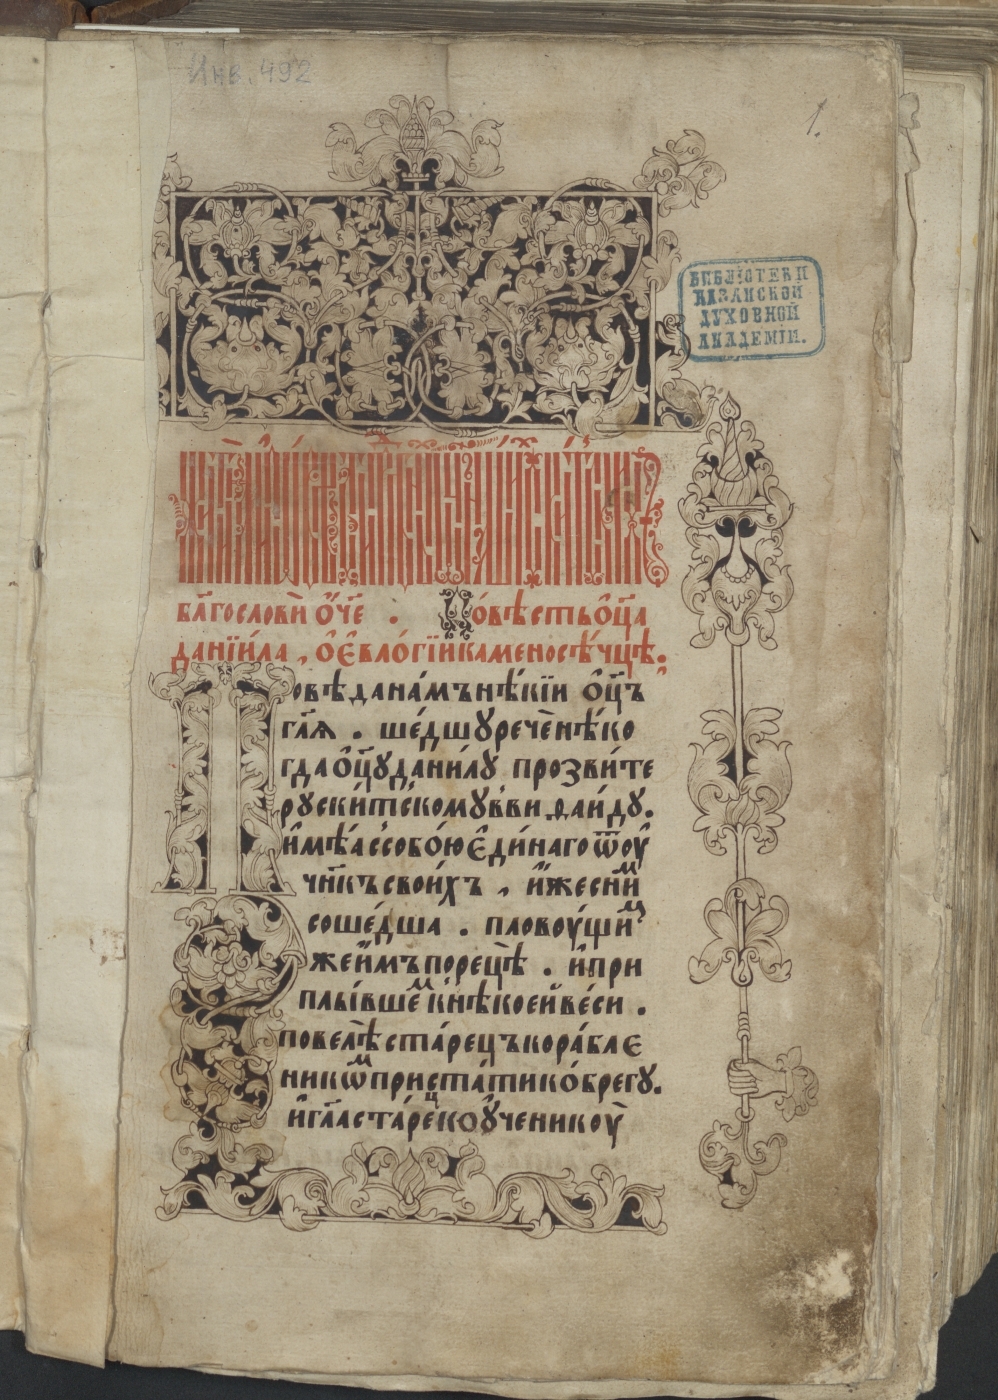 Инв. 492
1.
БИБЛІОТЕКИ
КАЗАНСКОЙ
ДУХОВНОЙ
АКАДЕМІИ.
бл҃гослови ѻ҆́ч҃е . По́вѣсть ѻ҆ц҃а
данїи́ла , ѻ҆ є҆вло́гїи каменосѣ́чцѣ .
Повѣда на́мъ нѣ́кїи ѻ҆ц҃ъ
гл҃я . ше́дшу рече нѣ́ко
гда ѻ҆ц҃у дани́лу прозви́те
ру ски́тскому в ви ѳаи́ду .
и҆мѣ́а с собо́ю є҆ди́наго ѿ оу҆
чн҃къ свои́хъ , и҆́же с ни́м
соше́дша . пловоу́щим
же и҆мъ по рецѣ̀ . и҆ при
плы́вшем к нѣ́коей ве́си .
повелѣ̀ ста́рецъ кора́бле
нико́м приста́ти ко́ брегу .
и҆ гл҃а ста́рец ко оу҆ченикоу̀